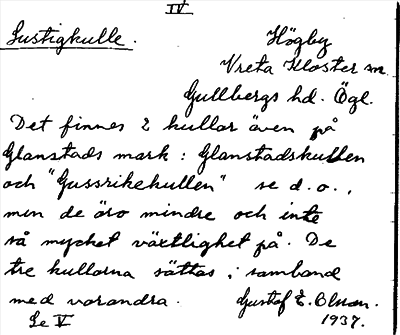 IV
Lustigkulle.
Högby
Vreta Kloster sn.
Gullbergs hd. Ögl.
Det finnes 2 kullar även på
Glanstads mark: Glanstadskullen
och "Gussrikekullen" se d.o.,
men de äro mindre och inte
så mycket växtlighet på. De
tre kullarna sättas i samband
med varandra.
Gustaf E. Olsson.
Se V
1937.